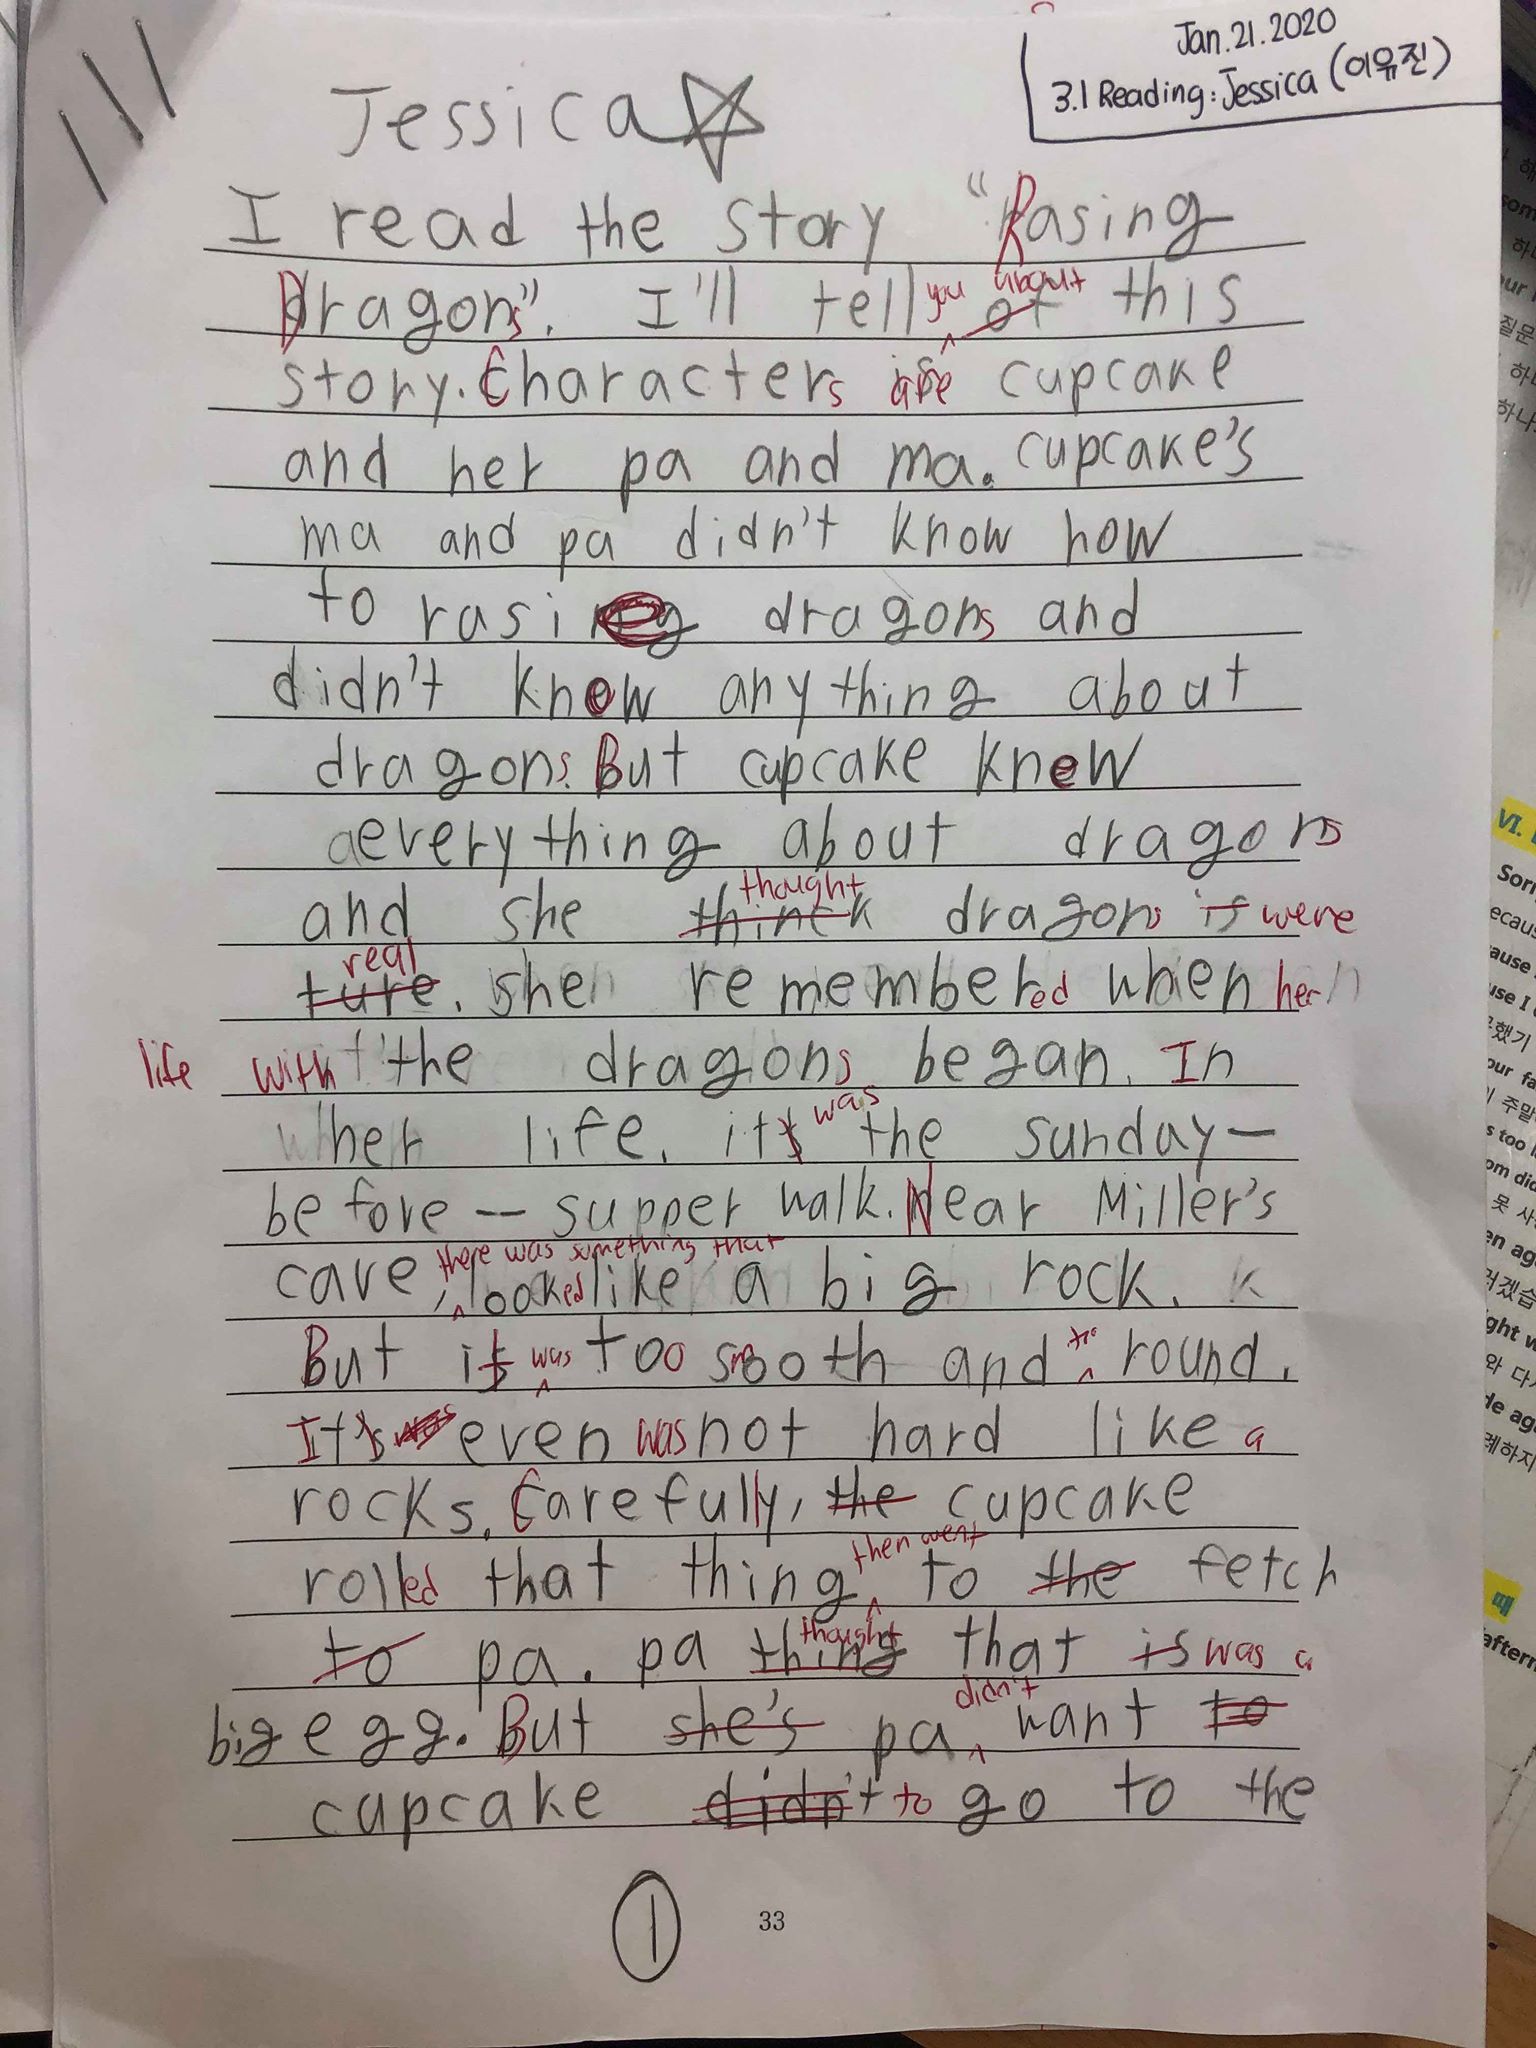 Jan.21.2020
3.1 Reading: Jessica (이유진)
Jessica
I read the story "Rasing
Dragons". I'll tell you about of this
story. Characters are cupcake
and her pa and ma. cupcake's
ma and pa didn't know how
to rasing dragons and
didn't know anything about
dragons. But cupcake knew
everything about dragons
and she think thought dragons is were
ture real. she remembered when her
life with the dragons began. In
her life, it was the sunday—
before — supper walk. Near Miller's
cave, there was something that looked like a big rock.
But it was too smooth and too round.
It's was even was not hard like a
rocks. Carefully, the cupcake
rolled that thing then went to the fetch
to pa. pa thing thought that is was a
big egg. But she's pa didn't want to
cupcake didn't to go to the
1
33
VI.